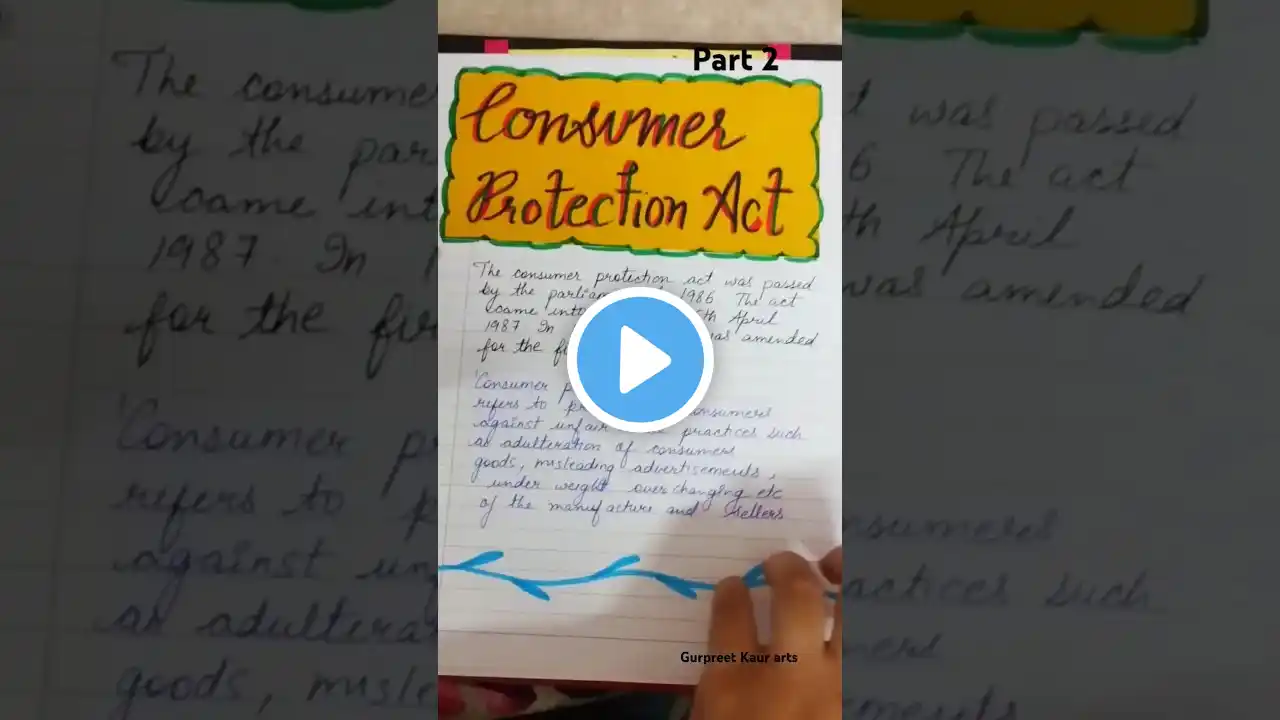 Part 2
Consumer
Protection Act
The consumer protection act was passed
by the parliam 1986 The act
came into 5th April
1987 In was amended
for the fi
'Consumer p
refers to pr consumers
against unfair practices such
as adulteration of consumers
goods, misleading advertisements,
under weight over changing etc
of the manufacture and sellers
Gurpreet Kaur arts